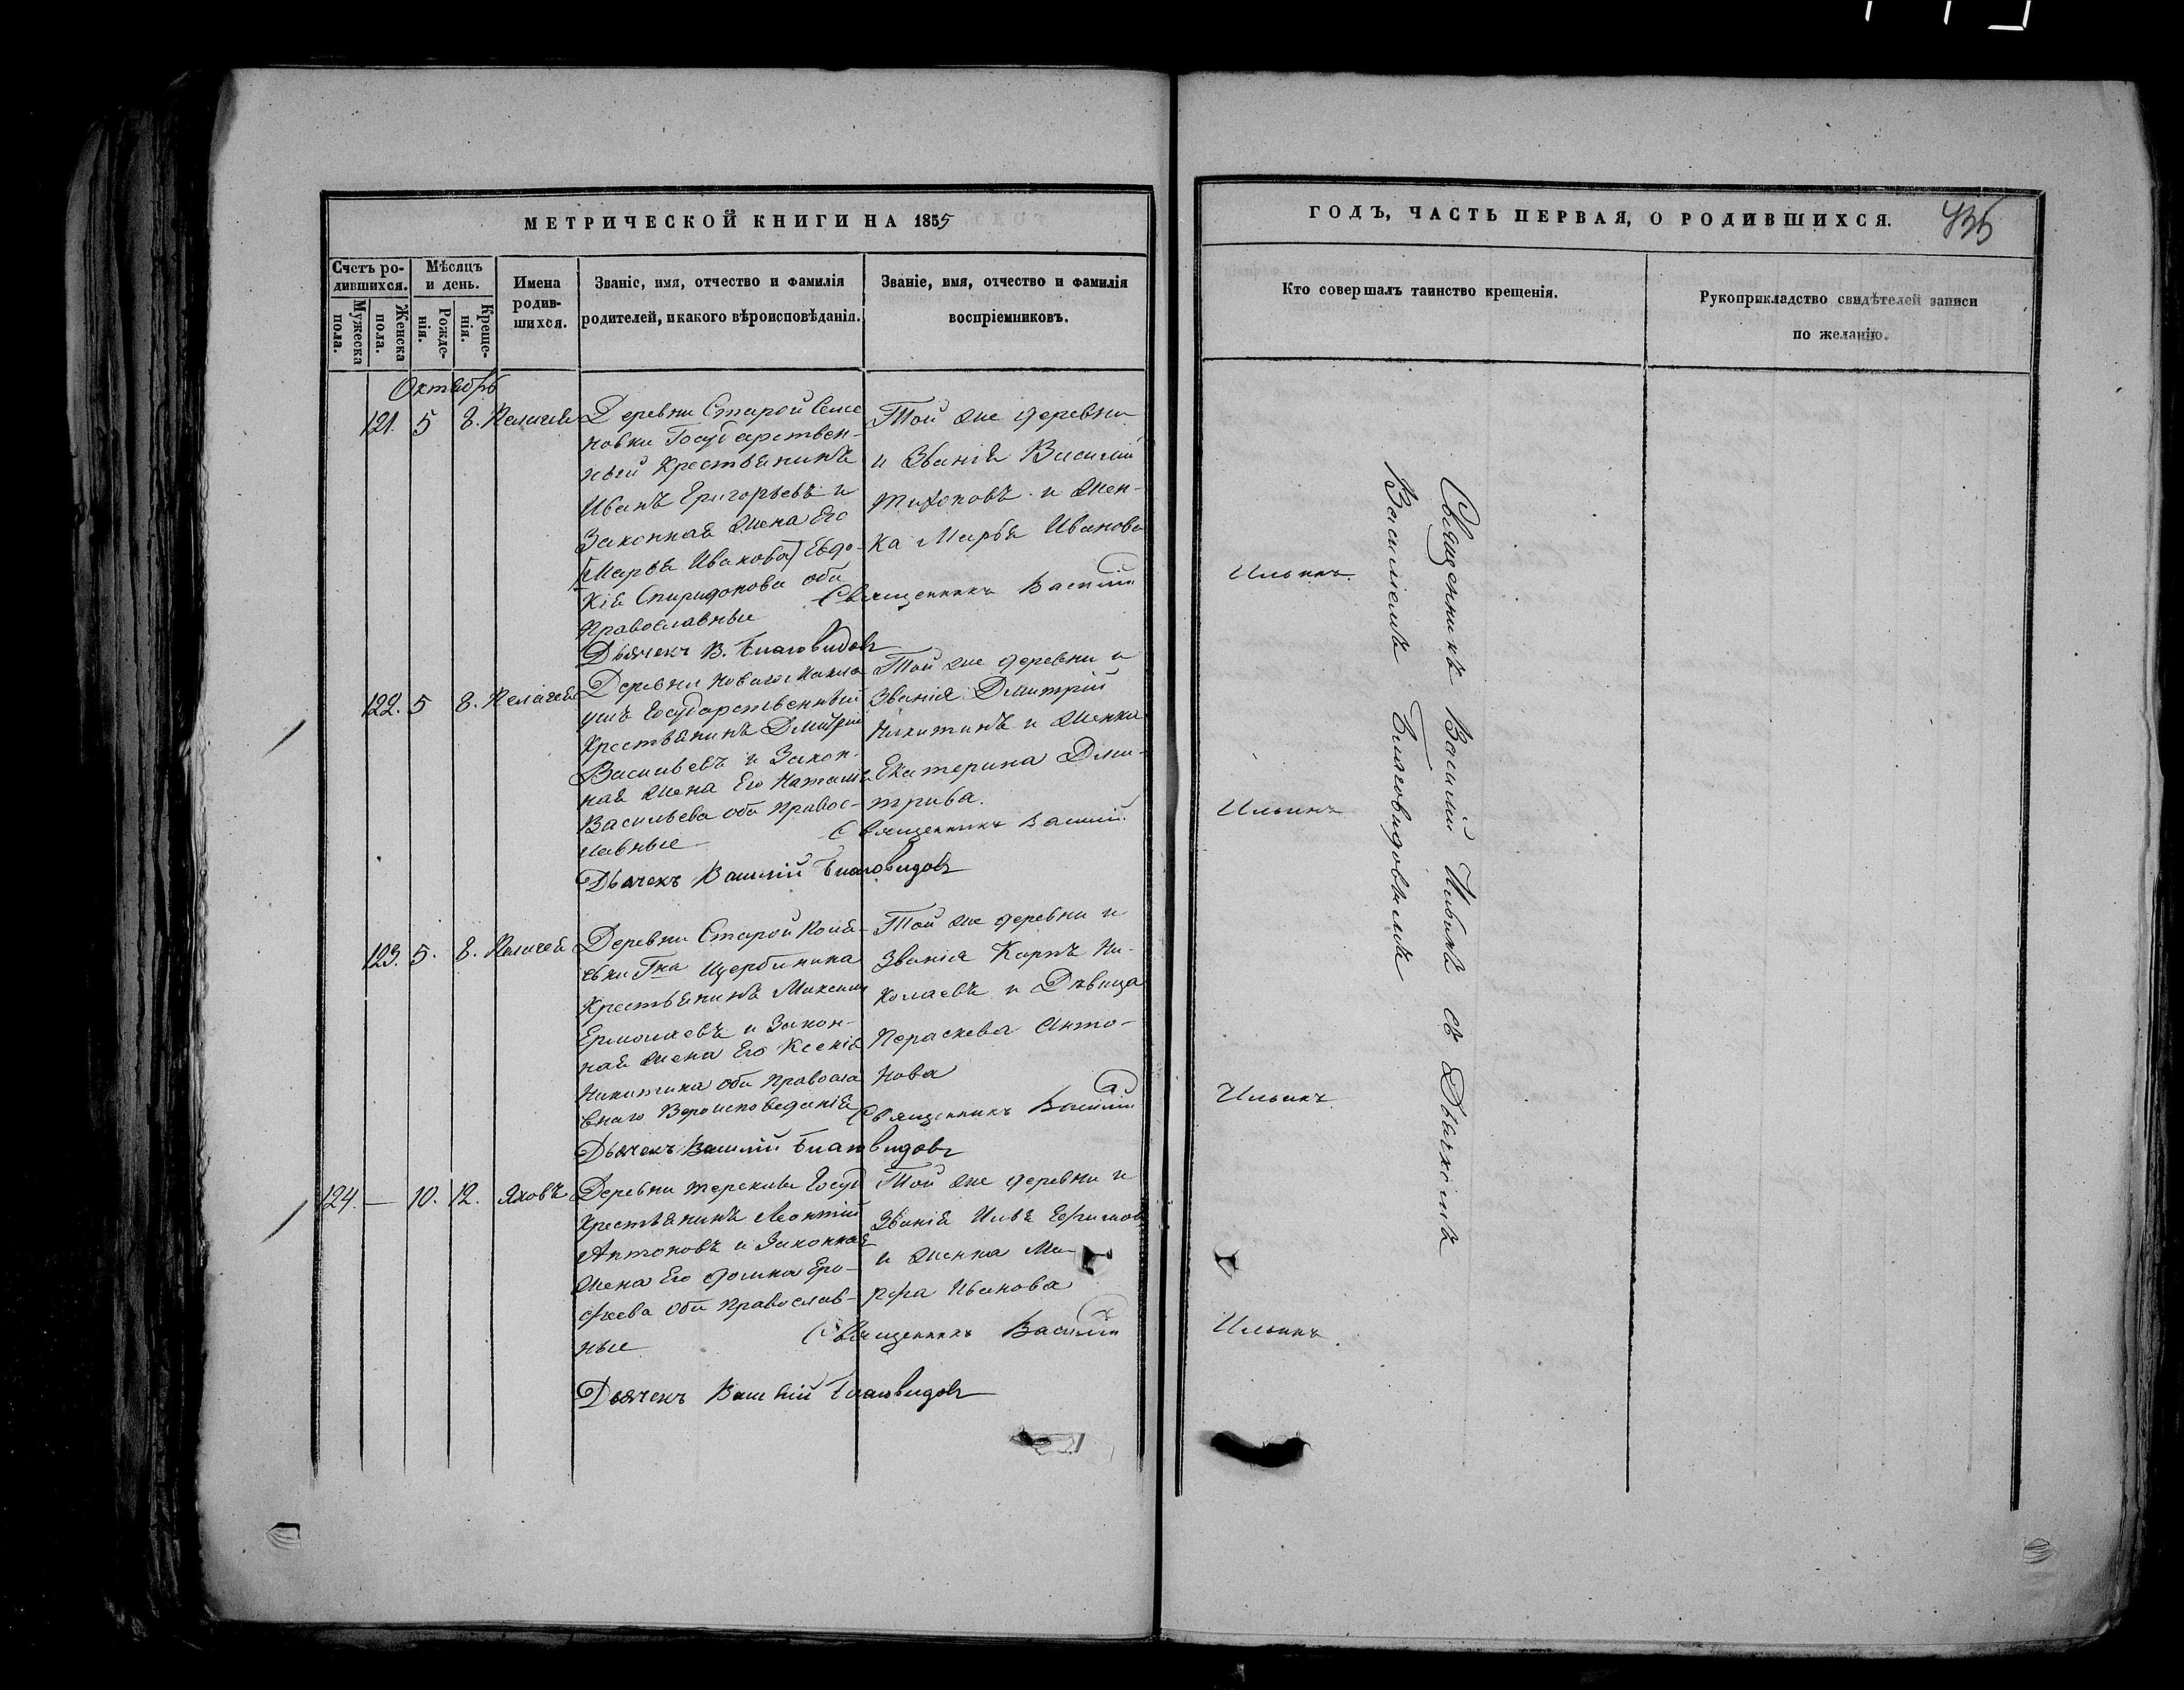 МЕТРИЧЕСКОЙ КНИГИ НА 1855
Счетъ ро-
дившихся.
Мужеска
пола.
Женска
пола.
Мѣсяцъ
и день.
Рожде-
нія.
Креще-
нія.
Имена
родив-
шихся.
Званіе, имя, отчество и фамилія
родителей, и какого вѣроисповѣданія.
Званіе, имя, отчество и фамилія
воспріемниковъ.
Октябрь
121. 5 8. Пелагея
Деревни Старой Семе
новки Государствен-
ный Крестьянинъ
Иванъ Григорьевъ и
Законная жена Его
[Марья Иванова] Евдо-
кія Спиридонова оба
Православные
Той же деревни
и Званія Василій
Тихоновъ и жен-
ка Марья Иванова
Священникъ Василій
Дьячекъ В. Благовидовъ
122. 5 8. Пелагея
Деревни Новаго
Государственный
Крестьянинъ Дмитрій
Васильевъ и Закон-
ная жена Его Наталія
Васильева оба Правос-
лавные
Той же деревни и
Званія Дмитрій
Никитинъ и женка
Екатерина Дми-
трива.
Священникъ Василій
Дьячекъ Василій Благовидовъ
123. 5. 8. Пелагея
Деревни Старой
Гна Щербинина
Крестьянинъ Максимъ
Ермолаевъ и Закон-
ная жена Его Ксенія
Никитина оба Правосла
внаго Вероисповеданія
Той же деревни и
Званія Карпъ Ни-
колаевъ и Дѣвица
Параскева Анто-
нова
Священникъ Василій
Дьячекъ Василій Благовидовъ
124. — 10. 12. Яковъ
Деревни Госуд
Крестьянинъ Леонтій
Антоновъ и Законная
жена Его Домна Еро-
феева Оба Православ-
ные
Той же деревни и
Званія Ефимовъ
и женка Ма-
рфа Иванова
Священникъ Василій
Дьячекъ Василій Благовидовъ
ГОДЪ, ЧАСТЬ ПЕРВАЯ, О РОДИВШИХСЯ.
Кто совершалъ таинство крещенія.
Рукоприкладство свидѣтелей записи
по желанію.
Ильинъ.
Ильинъ
Ильинъ
Ильинъ.
Священникъ Василій Ильинъ съ Дьячкомъ
Василіемъ Благовидовымъ